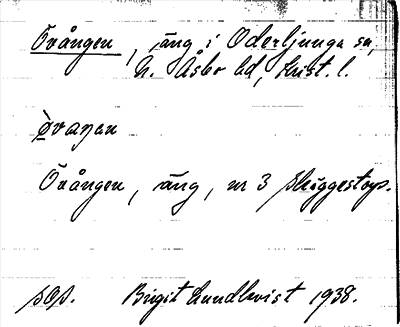 Övången, äng i Oderljunga sn,
N. Åsbo hd, Krist. l.
Övången, äng, nr 3 Skäggestorp.
sop. Birgit Lundkvist 1938.